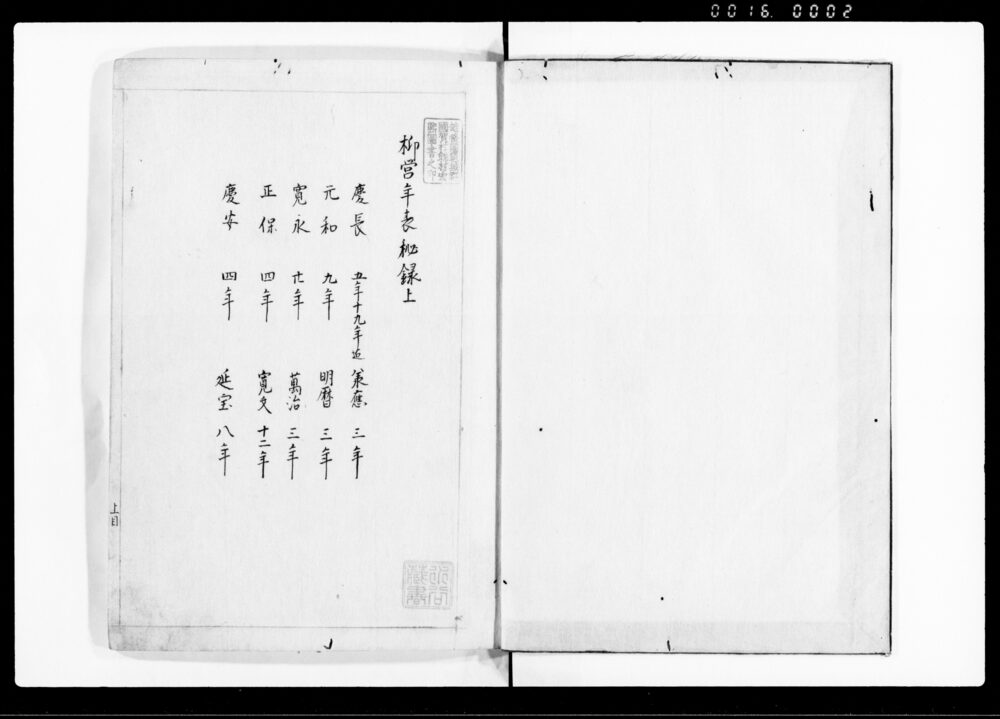 0016. 0002
柳営年表秘録上
慶長 五年十九年迄 承應 三年
元和 九年 明暦 三年
寛永 廿年 萬治 三年
正保 四年 寛文 十二年
慶安 四年 延宝 八年
上目